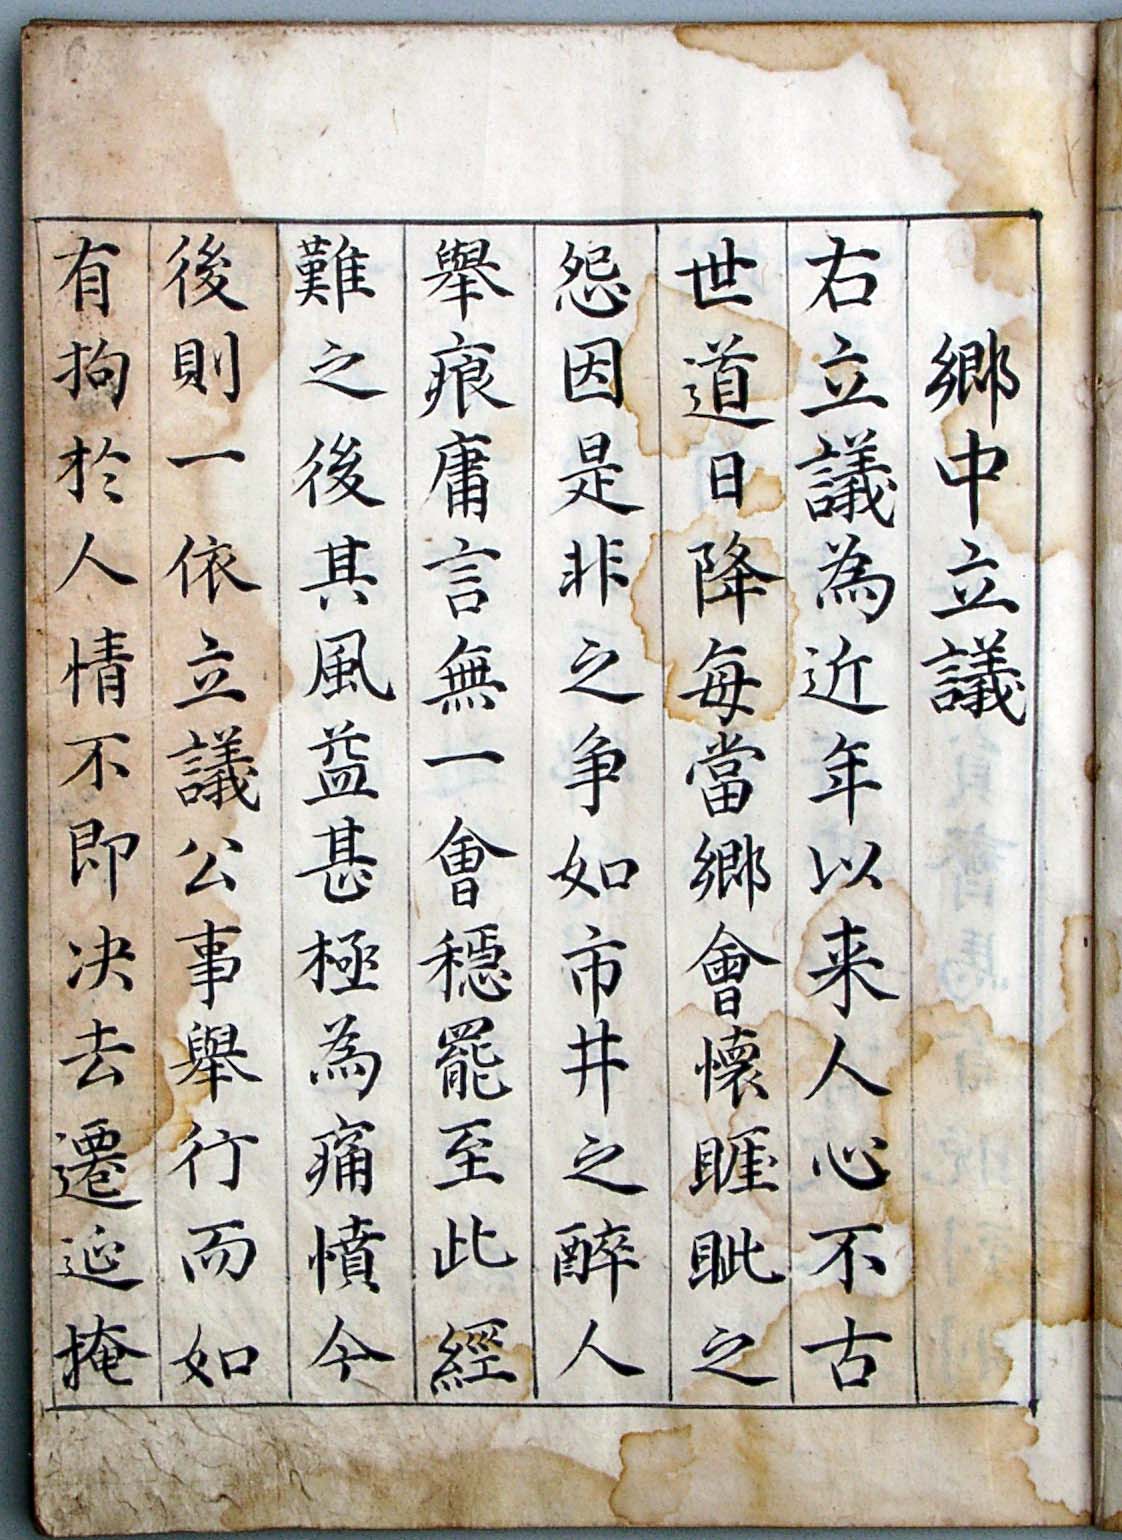 鄉中立議
右立議為近年以来人心不古
世道日降每當鄉會懷睚眦之
怨因是非之争如市井之醉人
舉痕庸言無一會穩罷至此經
難之後其風益甚極為痛憤今
後則一依立議公事舉行而如
有拘於人情不即决去遷延掩